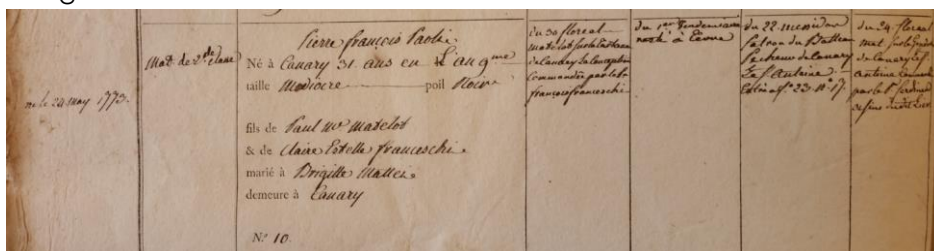 né le 24 may 1773.
Mat. de 2.de classe
Pierre françois Paoli
Né à Canary 31. ans en L'an 9me
taille Mediocre poil Noir
fils de Paul Mtre matelot
& de Claire Estelle franceschi.
marié à Brigitte Mattei.
demeure à Canary
N.º 10.
du 30 floreal
matelot sur le
de Canary la Conception
Commandé par le P.n
françois franceschi
du 1er Vendemiaire
resté à
du 22 messidor
Patron du Batteau
Pecheur de Canary
Le St. Antoine
f.º 23. n.º 17.
du 24 floreal
mat. sur la
de Canary le St.
antoine
par le P.n